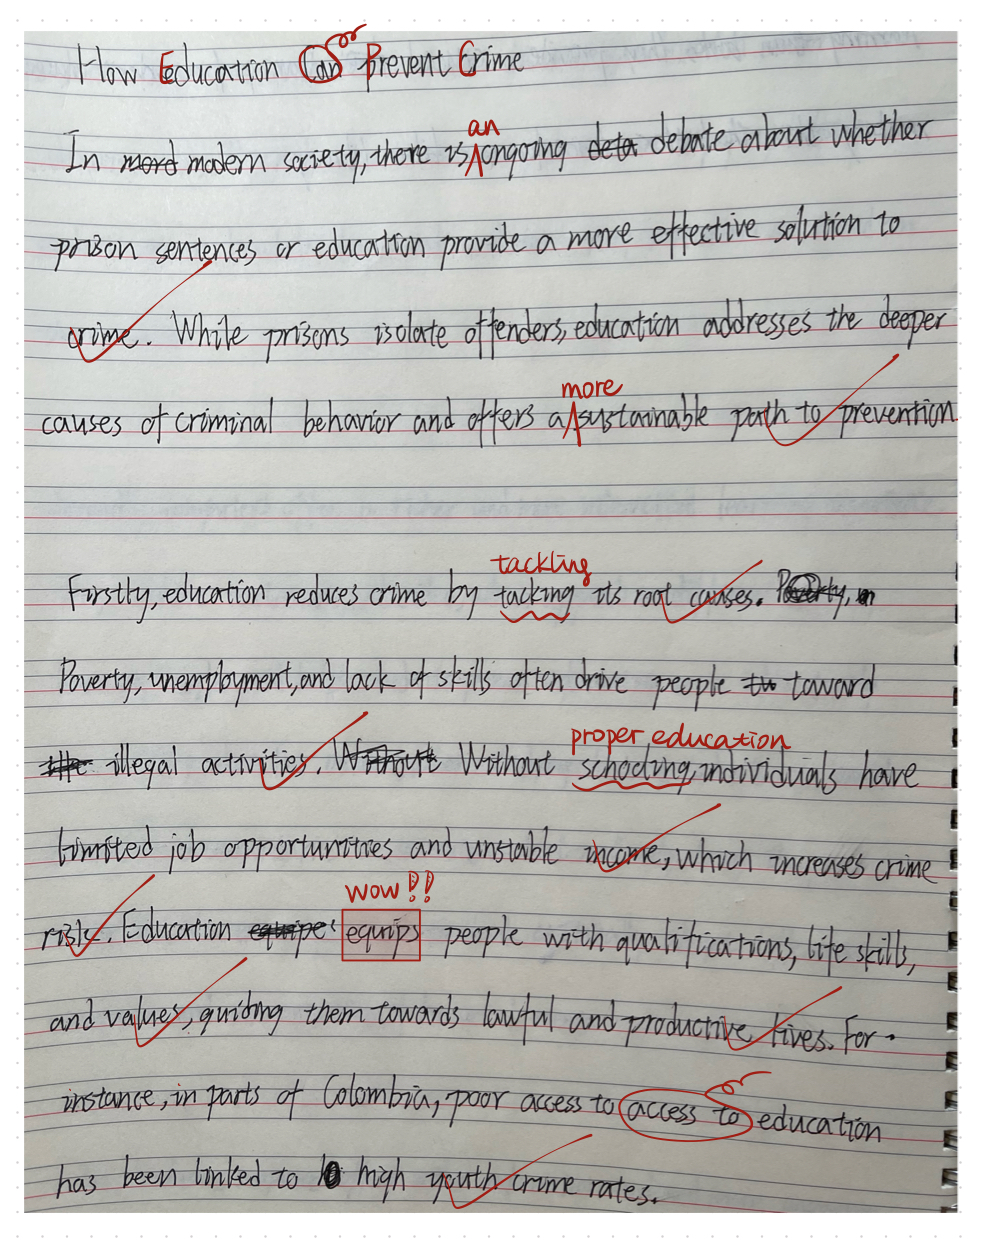 How Education Can Prevent Crime
an
In mord modern society, there is ongoing deta debate about whether
prison sentences or education provide a more effective solution to
crime. While prisons isolate offenders, education addresses the deeper
more
causes of criminal behavior and offers a sustainable path to prevention
tackling
Firstly, education reduces crime by tacking its root causes. Poverty,
Poverty, unemployment, and lack of skills often drive people toward
proper education
the illegal activities. Without Without schooling, individuals have
limited job opportunities and unstable income, which increases crime
wow!!
risk. Education equipe equips people with qualifications, life skills,
and values, guiding them towards lawful and productive lives. For
instance, in parts of Colombia, poor access to access to education
has been linked to high youth crime rates.